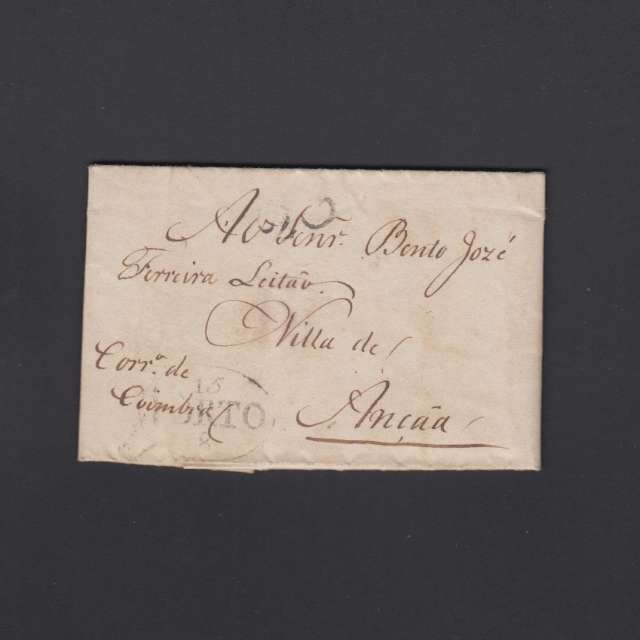 Ao Senr. Bento Jozé
Ferreira Leitão.
Villa de
Corra. de
Coimbra
Ançãa
15
PORTO.